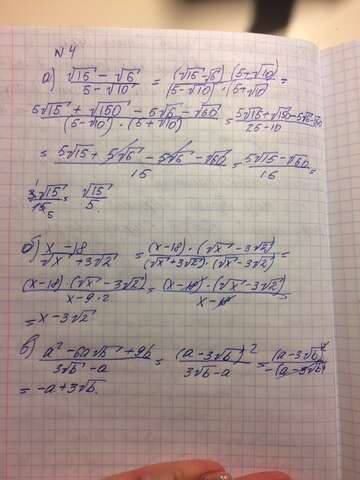 N 4
а) (√15 - √6)/(5 - √10) = ((√15 - √6)·(5+√10))/((5-√10)·(5+√10)) =
(5√15 + √150 - 5√6 - √60)/((5-√10)·(5+√10)) = (5√15+√150-5√6-√60)/(25-10)
= (5√15 + 5√6 - 5√6 - √60)/15 = (5√15 - √60)/15 =
3√15/15 5 = √15/5.
б) (x - 18)/(√x + 3√2) = ((x-18)·(√x - 3√2))/((√x+3√2)·(√x-3√2)) =
((x-18)·(√x-3√2))/(x-9·2) = ((x-18)·(√x-3√2))/(x-18)
= x - 3√2
в) (a² - 6a√b + 9b)/(3√b - a) = (a-3√b)²/(3√b-a) = (a-3√b)²/-(a-3√b)
= -a+3√b.